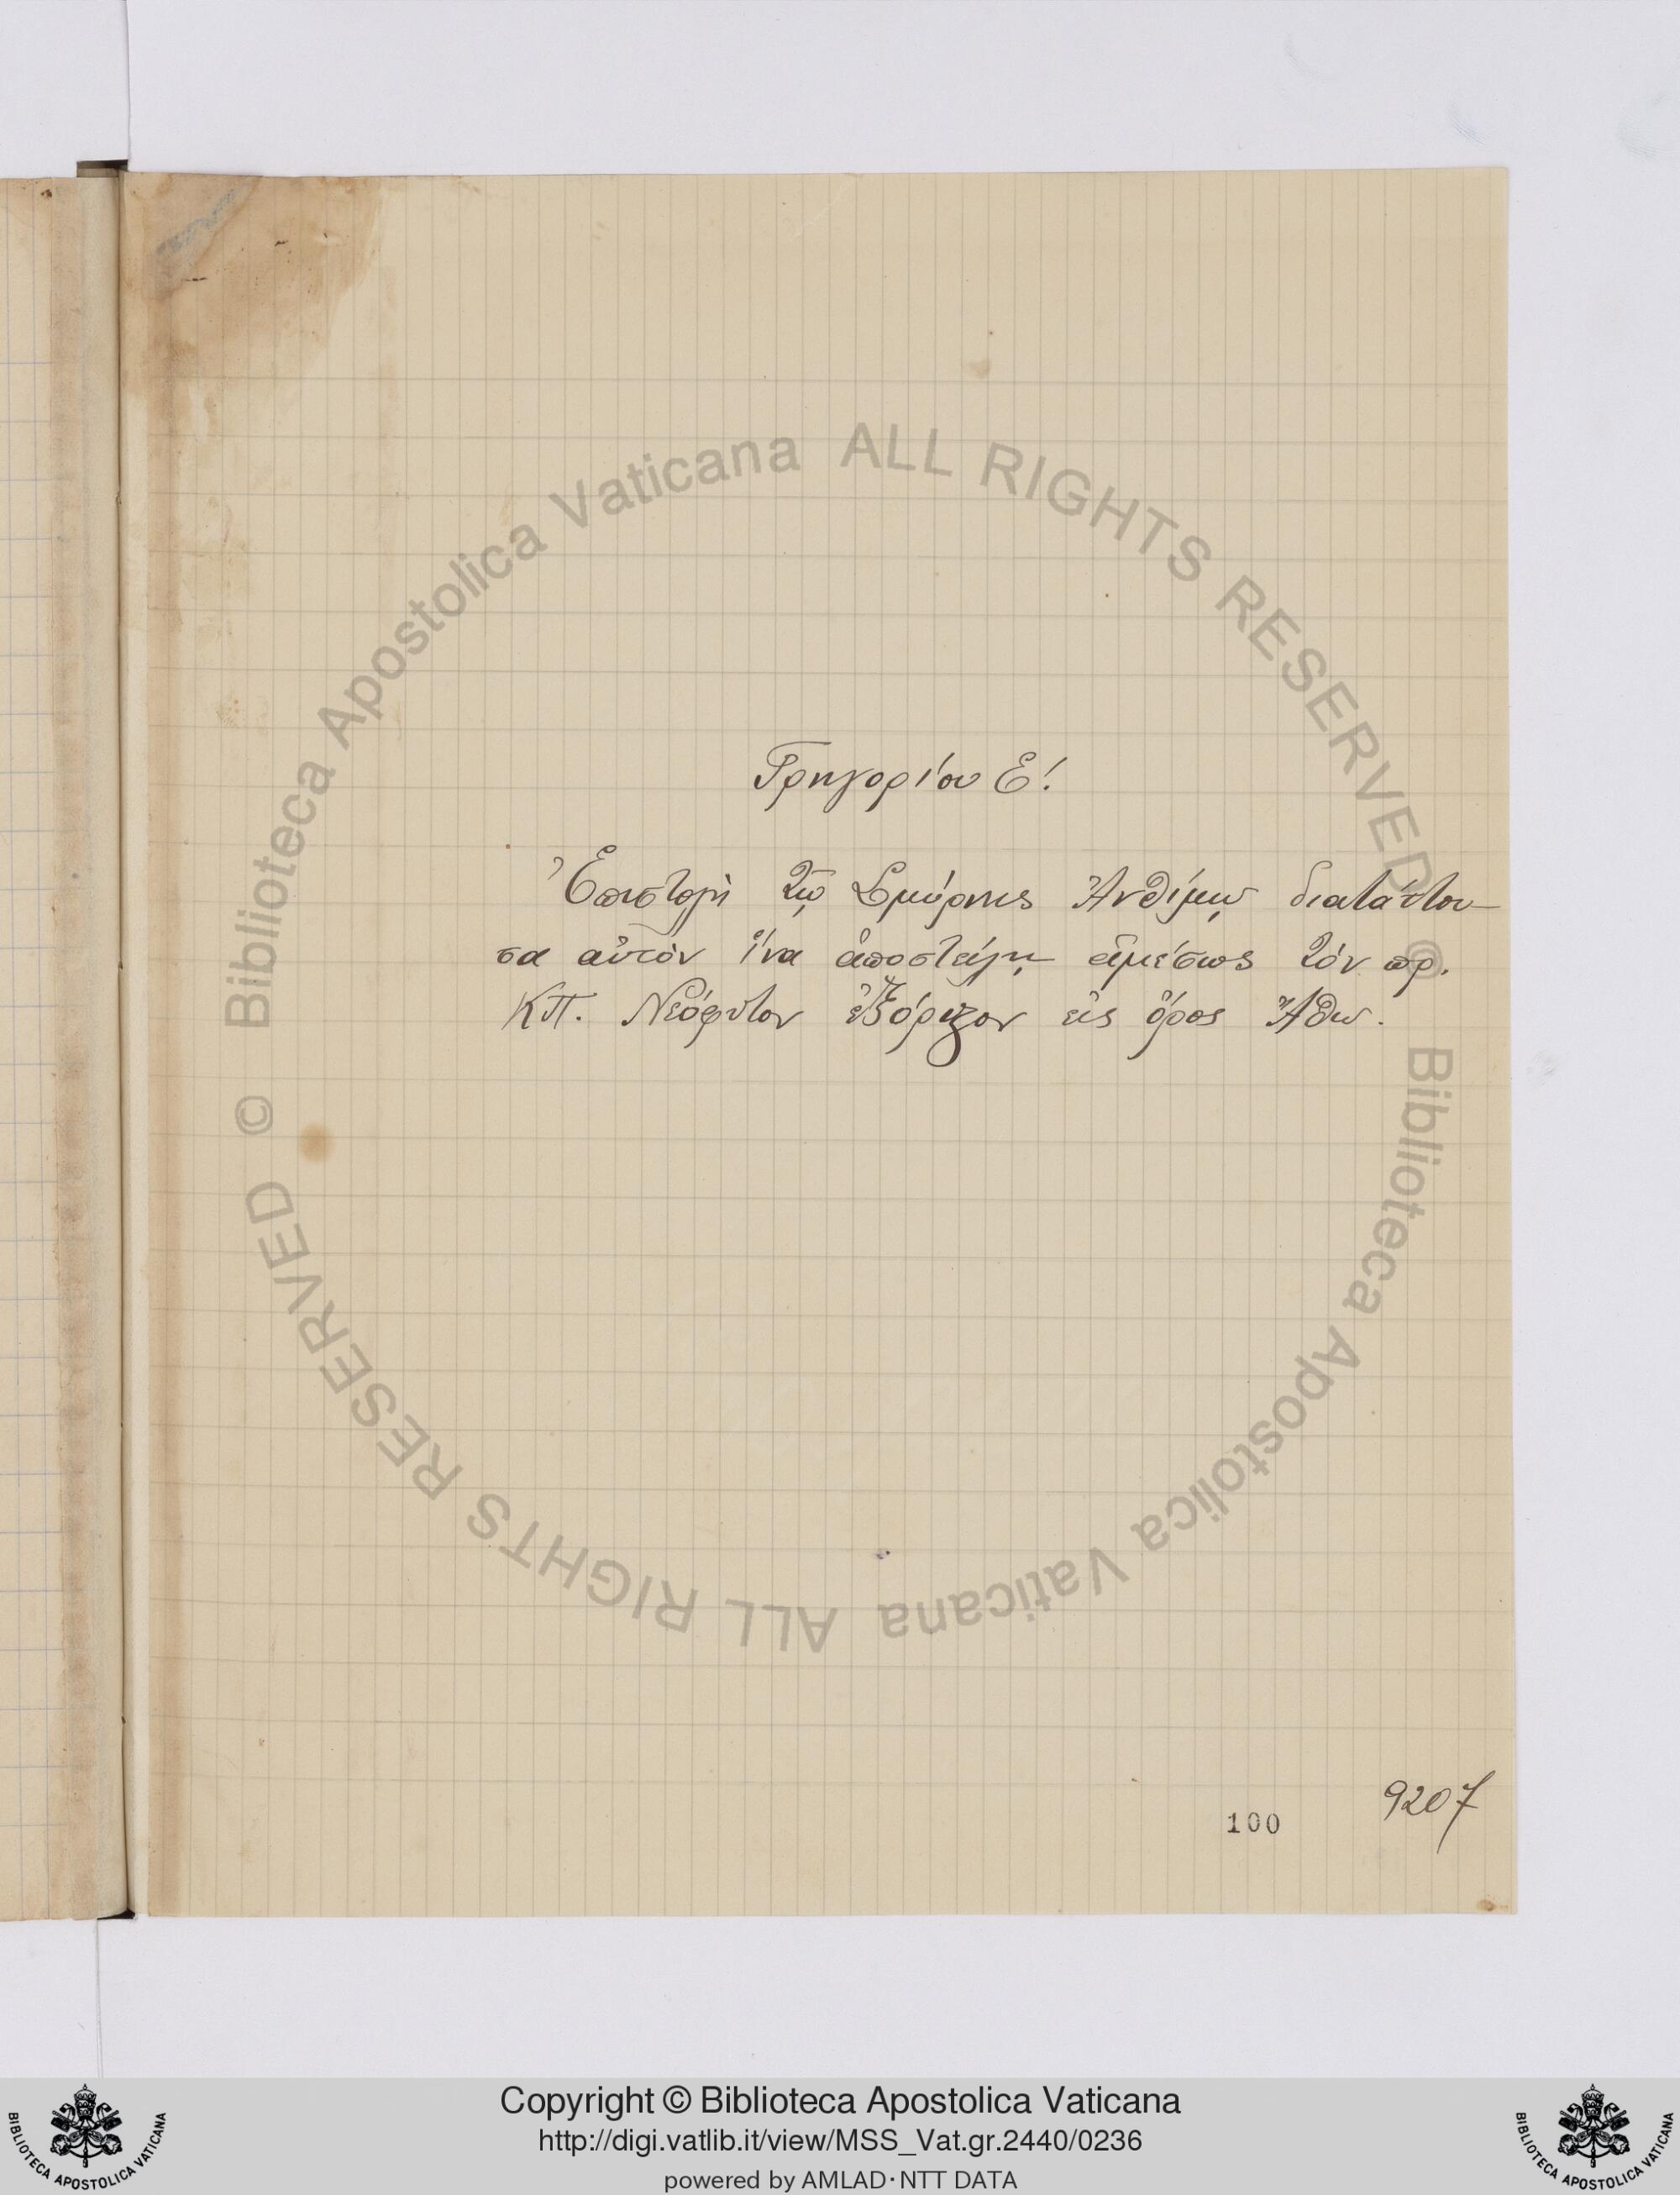 Γρηγορίου Ε΄.
Ἐπιστολὴ τῷ Σμύρνης Ἀνθίμῳ διατάττου-
σα αὐτὸν ἵνα ἀποστείλῃ ἀμέσως τὸν πρ.
ΚΠ. Νεόφυτον ἐξόριστον εἰς ὄρος Ἄθω.
100
9207
© Biblioteca Apostolica Vaticana ALL RIGHTS RESERVED
© Biblioteca Apostolica Vaticana ALL RIGHTS RESERVED
Copyright © Biblioteca Apostolica Vaticana
http://digi.vatlib.it/view/MSS_Vat.gr.2440/0236
powered by AMLAD·NTT DATA
BIBLIOTECA APOSTOLICA VATICANA
BIBLIOTECA APOSTOLICA VATICANA